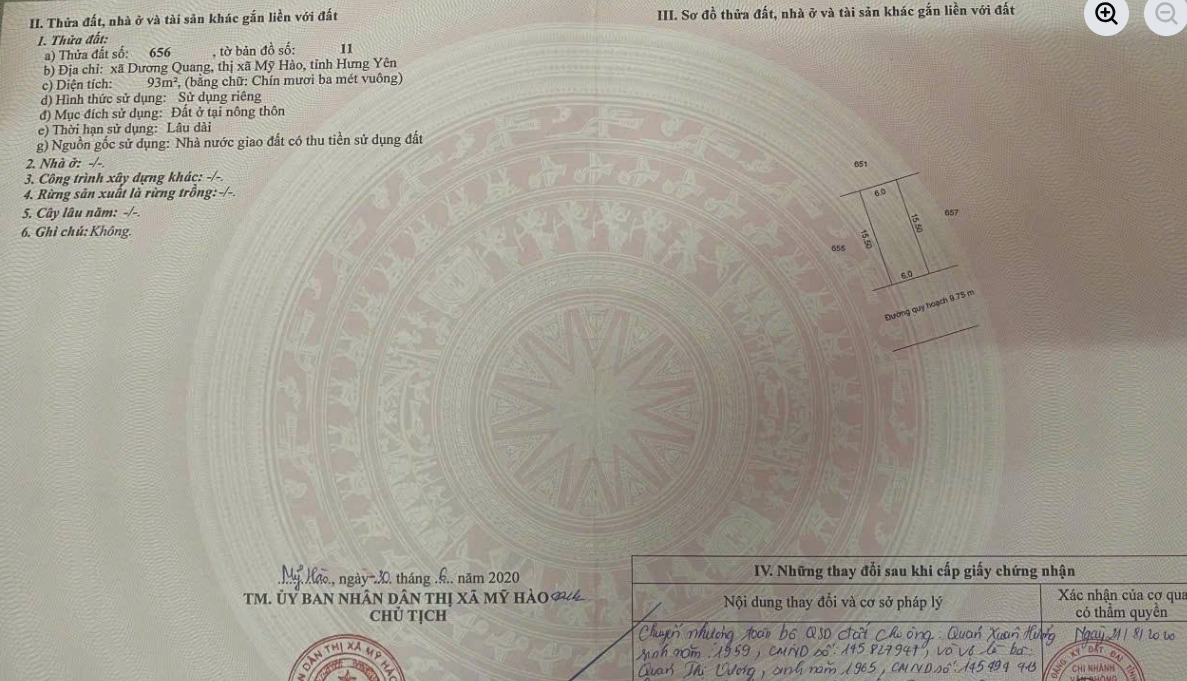 II. Thửa đất, nhà ở và tài sản khác gắn liền với đất
1. Thửa đất:
a) Thửa đất số: 656 , tờ bản đồ số: 11
b) Địa chỉ: xã Dương Quang, thị xã Mỹ Hào, tỉnh Hưng Yên
c) Diện tích: 93m², (bằng chữ: Chín mươi ba mét vuông)
d) Hình thức sử dụng: Sử dụng riêng
đ) Mục đích sử dụng: Đất ở tại nông thôn
e) Thời hạn sử dụng: Lâu dài
g) Nguồn gốc sử dụng: Nhà nước giao đất có thu tiền sử dụng đất
2. Nhà ở: -/-.
3. Công trình xây dựng khác: -/-.
4. Rừng sản xuất là rừng trồng: -/-.
5. Cây lâu năm: -/-.
6. Ghi chú: Không.
Mỹ Hào., ngày 30 tháng 6.. năm 2020
TM. ỦY BAN NHÂN DÂN THỊ XÃ MỸ HÀO
CHỦ TỊCH
DÂN THỊ XÃ MỸ HÀO
III. Sơ đồ thửa đất, nhà ở và tài sản khác gắn liền với đất
651
6.0
15.50
15.50
657
6.0
Đường quy hoạch 9.75 m
IV. Những thay đổi sau khi cấp giấy chứng nhận
Nội dung thay đổi và cơ sở pháp lý
Xác nhận của cơ qua
có thẩm quyền
Chuyển nhượng toàn bộ QSD đất cho ông: Quan Xuân Hương
sinh năm: 1959, CMND số: 145 827941, và vợ là bà:
Quan Thị Vương, sinh năm 1965, CMND số: 145 494 913
Ngày 21/8/2020
KÝ ĐẤT ĐAI
CHI NHÁNH
VĂN PHÒNG